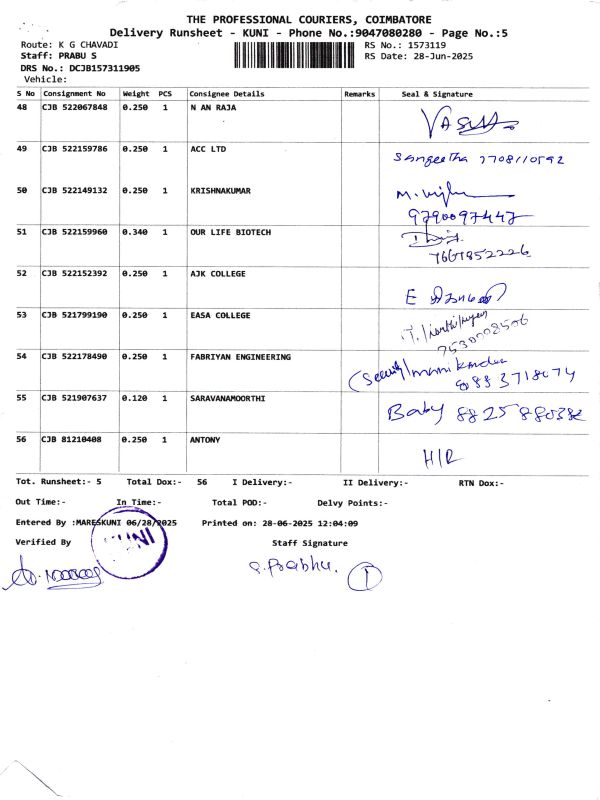 THE PROFESSIONAL COURIERS, COIMBATORE
Delivery Runsheet - KUNI - Phone No.:9047080280 - Page No.:5
Route: K G CHAVADI RS No.: 1573119
Staff: PRABU S RS Date: 28-Jun-2025
DRS No.: DCJB157311905
Vehicle:
S No Consignment No Weight PCS Consignee Details Remarks Seal & Signature
48 CJB 522067848 0.250 1 N AN RAJA
49 CJB 522159786 0.250 1 ACC LTD Sangeetha 7708110592
50 CJB 522149132 0.250 1 KRISHNAKUMAR
9790097447
51 CJB 522159960 0.340 1 OUR LIFE BIOTECH
52 CJB 522152392 0.250 1 AJK COLLEGE
53 CJB 521799190 0.250 1 EASA COLLEGE
54 CJB 522178490 0.250 1 FABRIYAN ENGINEERING
55 CJB 521907637 0.120 1 SARAVANAMOORTHI Baby
56 CJB 81210408 0.250 1 ANTONY H/R
Tot. Runsheet:- 5 Total Dox:- 56 I Delivery:- II Delivery:- RTN Dox:-
Out Time:- In Time:- Total POD:- Delvy Points:-
Entered By :MARESKUNI 06/28/2025 Printed on: 28-06-2025 12:04:09
Verified By Staff Signature
KUNI
S.Prabhu. I